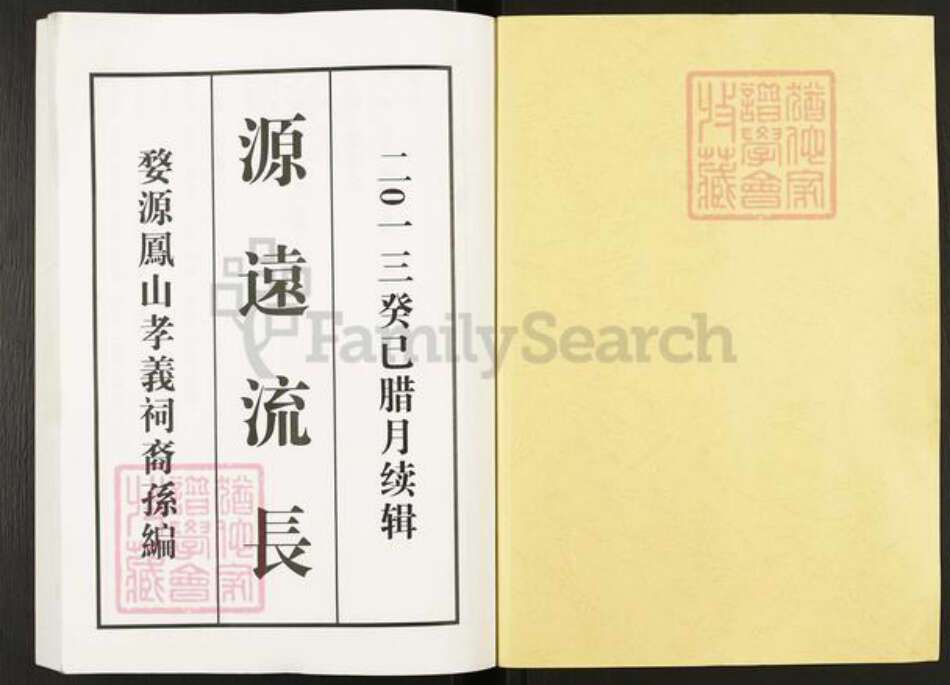 二0一三癸巳腊月续辑
源遠流長
婺源鳳山孝義祠裔孫編
猶他家
譜學會
收藏
猶他家
譜學會
收藏
FamilySearch